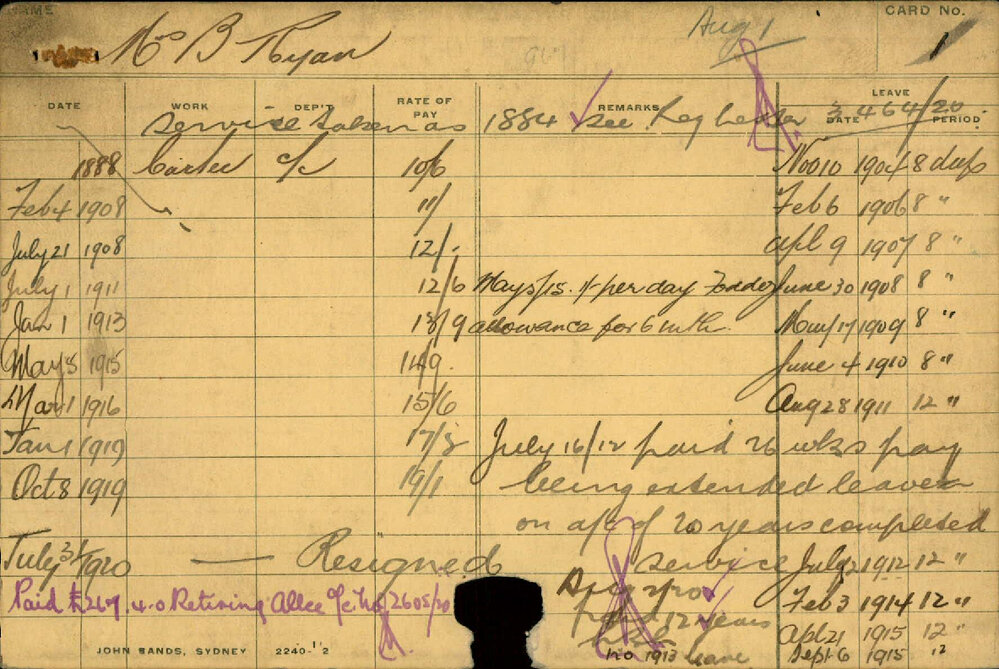 NAME CARD No.
Mrs B Ryan Aug 1 1
DATE WORK DEP'T RATE OF PAY REMARKS LEAVE DATE PERIOD
Service taken as 1884 See Reg 464/20
1888 Carter c/c 10/6 Nov 10 1904 8 days
Feb 4 1908 11/ Feb 6 1906 8 "
July 21 1908 12/- Apl 9 1907 8 "
July 1 1911 12/6 May 5/15. 1/- per day June 30 1908 8 "
Jan 1 1913 13/9 allowance for 6 mth. May 17 1909 8 "
May 5 1915 14/9. June 4 1910 8 "
Mar 1 1916 15/6 Aug 28 1911 12 "
Jan 1 1919 17/3 July 16/12 paid 26 wks pay
Oct 8 1919 19/1 being extended leave
on a/c of 20 years completed
July 31/1920 — Resigned service July 2 1912 12 "
Paid £267.4.0 Retiring Allce 2605/20 Aug Feb 3 1914 12 "
12 years Apl 21 1915 12 "
1913 leave Sept 6 1915 12
JOHN SANDS, SYDNEY 2240-1'2